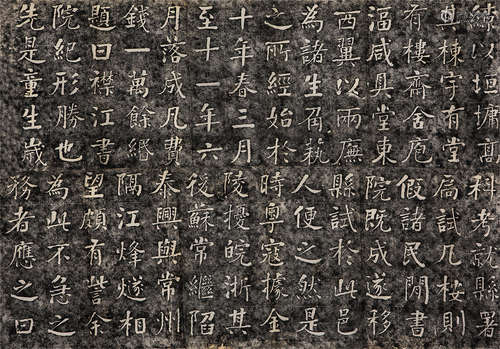 繚以垣墉高
其棟宇有堂
有樓齋舍庖
湢咸具堂東
西翼以兩廡
為諸生肄埶
之所經始於
十年春三月
至十一年六
月落成凡費
錢一萬餘緡
題曰襟江書
院紀形勝也
先是童生歲
科考就縣署
扃試几桉則
假諸民間書
院既成遂移
縣試於此邑
人便之然是
時粵寇據金
陵擾皖浙其
後蘇常繼陷
泰興與常州
隅江烽燧相
望頗有訾余
為此不急之
務者應之曰